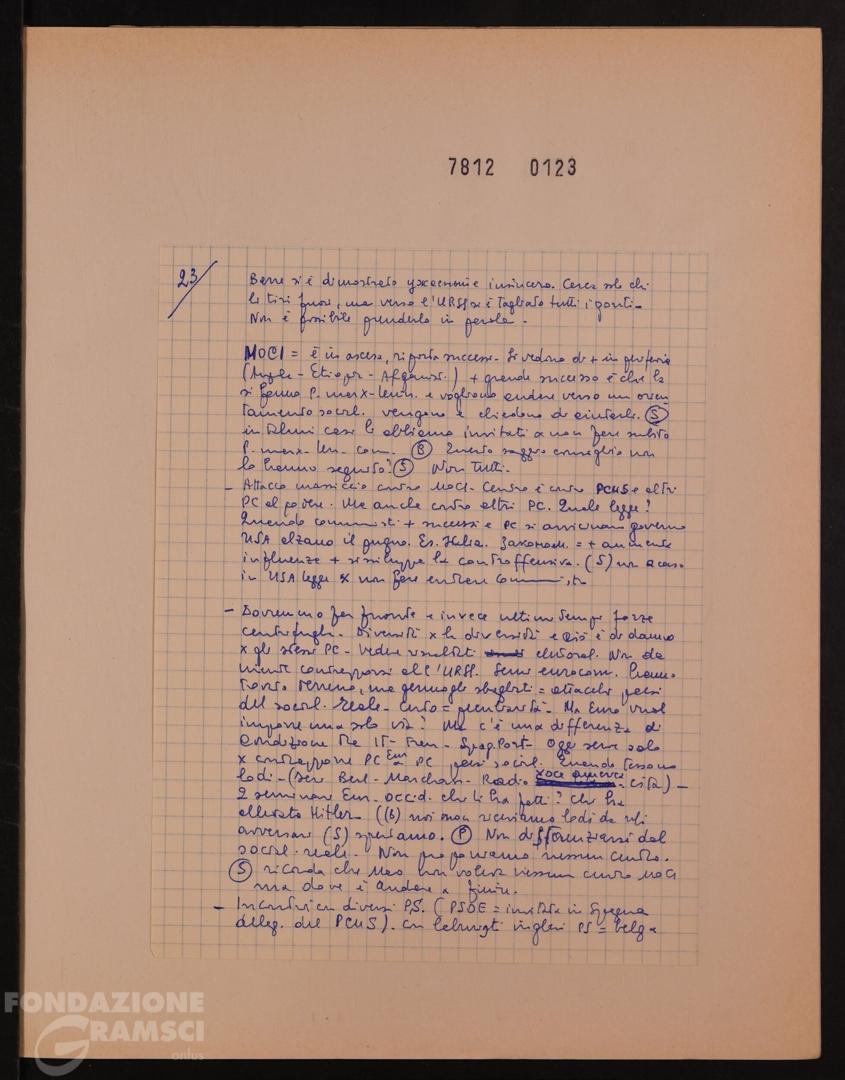 7812 0123
23/
Barre si è dimostrato ужасно insincero. Cerca solo chi
lo tiri fuori, ma verso l'URSS si è tagliato tutti i ponti.
Non è possibile prenderlo in parola.
MOCI = è in ascesa, riporta successi. Si vedono di + in periferia
(Angola - Etiopia - Afganist.) + grande successo è che là
si fanno P. marx-lenin. e vogliono andare verso un orien
tamento social. vengono e chiedono di aiutarli. (S)
in taluni casi li abbiamo invitati a non fare subito
P. marx-len. com. (B) Questo saggio consiglio non
lo hanno seguito? (S) Non tutti.
- Attacco massiccio contro MOCI. Centro è contro PCUS e altri
PC al potere. Ma anche contro altri PC. Quale legge?
Quando comunisti + successi e PC si avvicinano governo
USA alzano il pugno. Es. Italia. Законом. = + aumenta
influenza + si sviluppa la controffensiva. (S) non a caso
in USA legge x non fare entrare com
- Dovremmo far fronte e invece ultimi tempi forze
centrifughe. Diversità x la diversità e ciò è di danno
x gli stessi PC - Vedere risultati elettoral. Non da
niente contrapporsi all'URSS. Semi eurocom. hanno
trovato terreno, ma germogli sbagliati = attacchi paesi
del social. reale. Ma Euro vuol
imporre una sola via? Ma c'è una differenza di
condizione tra IT - Fran - Spag. Port - Oggi serve solo
x contrapporre PC Eur a PC paesi social. Quando tessono
lodi - (per Berl - Marchais - Radio voce america cita) -
2 seminari Eur. occid. chi li ha fatti? Chi ha
allevato Hitler ((B) noi non riceviamo lodi da
avversari (S) speriamo. (P) Non differenziarsi dal
social. reale. Non proponiamo nessun centro.
(S) ricorda che Mao non voleva nessun centro MOCI
ma dove è andare a finire.
- Incontri con diversi P.S. (PSOE = invitata in Spagna
deleg. del PCUS). con laburisti inglesi PS = belga
FONDAZIONE
GRAMSCI
onlus